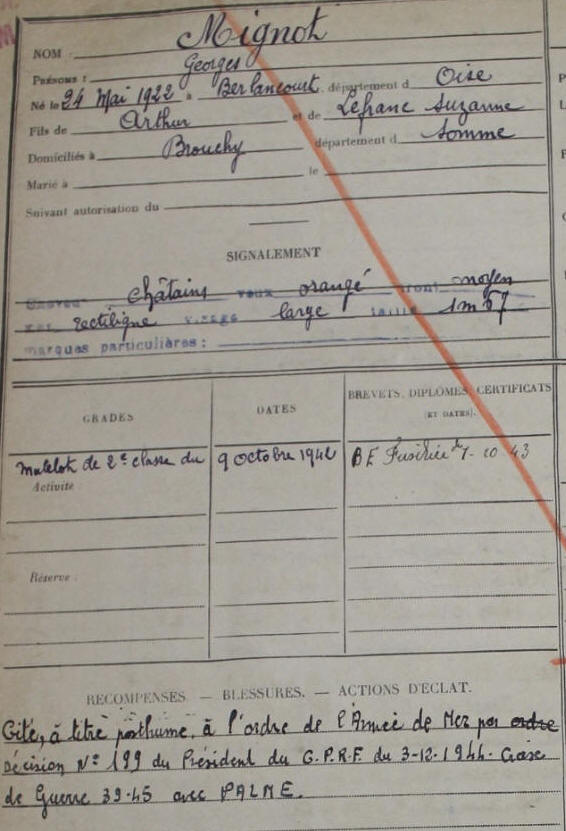 NOM : Mignot
PRÉNOMS : Georges
Né le 24 Mai 1922 à Berlancourt, département d Oise
Fils de Arthur et de Lefranc Suzanne
Domiciliés à Brouchy département d Somme
Marié à le
Suivant autorisation du
SIGNALEMENT
Cheveux châtains yeux orangé front moyen
nez rectiligne visage large taille 1m67
marques particulières :
GRADES DATES BREVETS, DIPLOMES, CERTIFICATS
(ET DATES).
Matelot de 2e classe du 9 octobre 1942 BE Fusilier 7-10 43
Activité :
Réserve :
RÉCOMPENSES. — BLESSURES. — ACTIONS D'ÉCLAT.
Cité, à titre posthume, à l'ordre de l'Armée de Mer par ordre
Décision N° 199 du Président du G.P.R.F. du 3-12-1944. Croix
de Guerre 39-45 avec PALME.